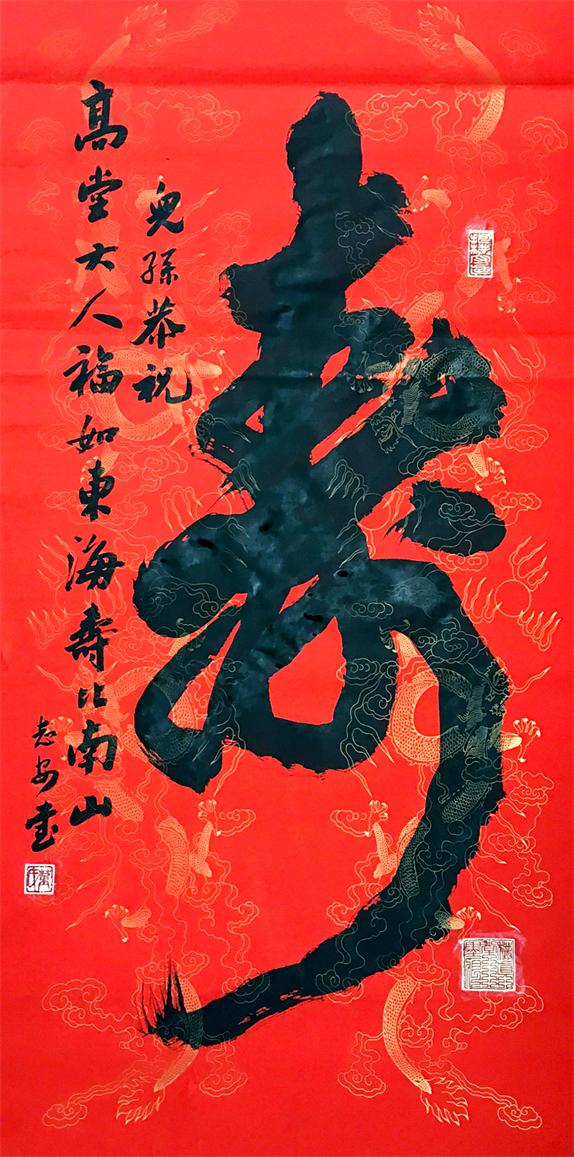 壽
兒孫恭祝
高堂大人福如東海壽比南山
志安書